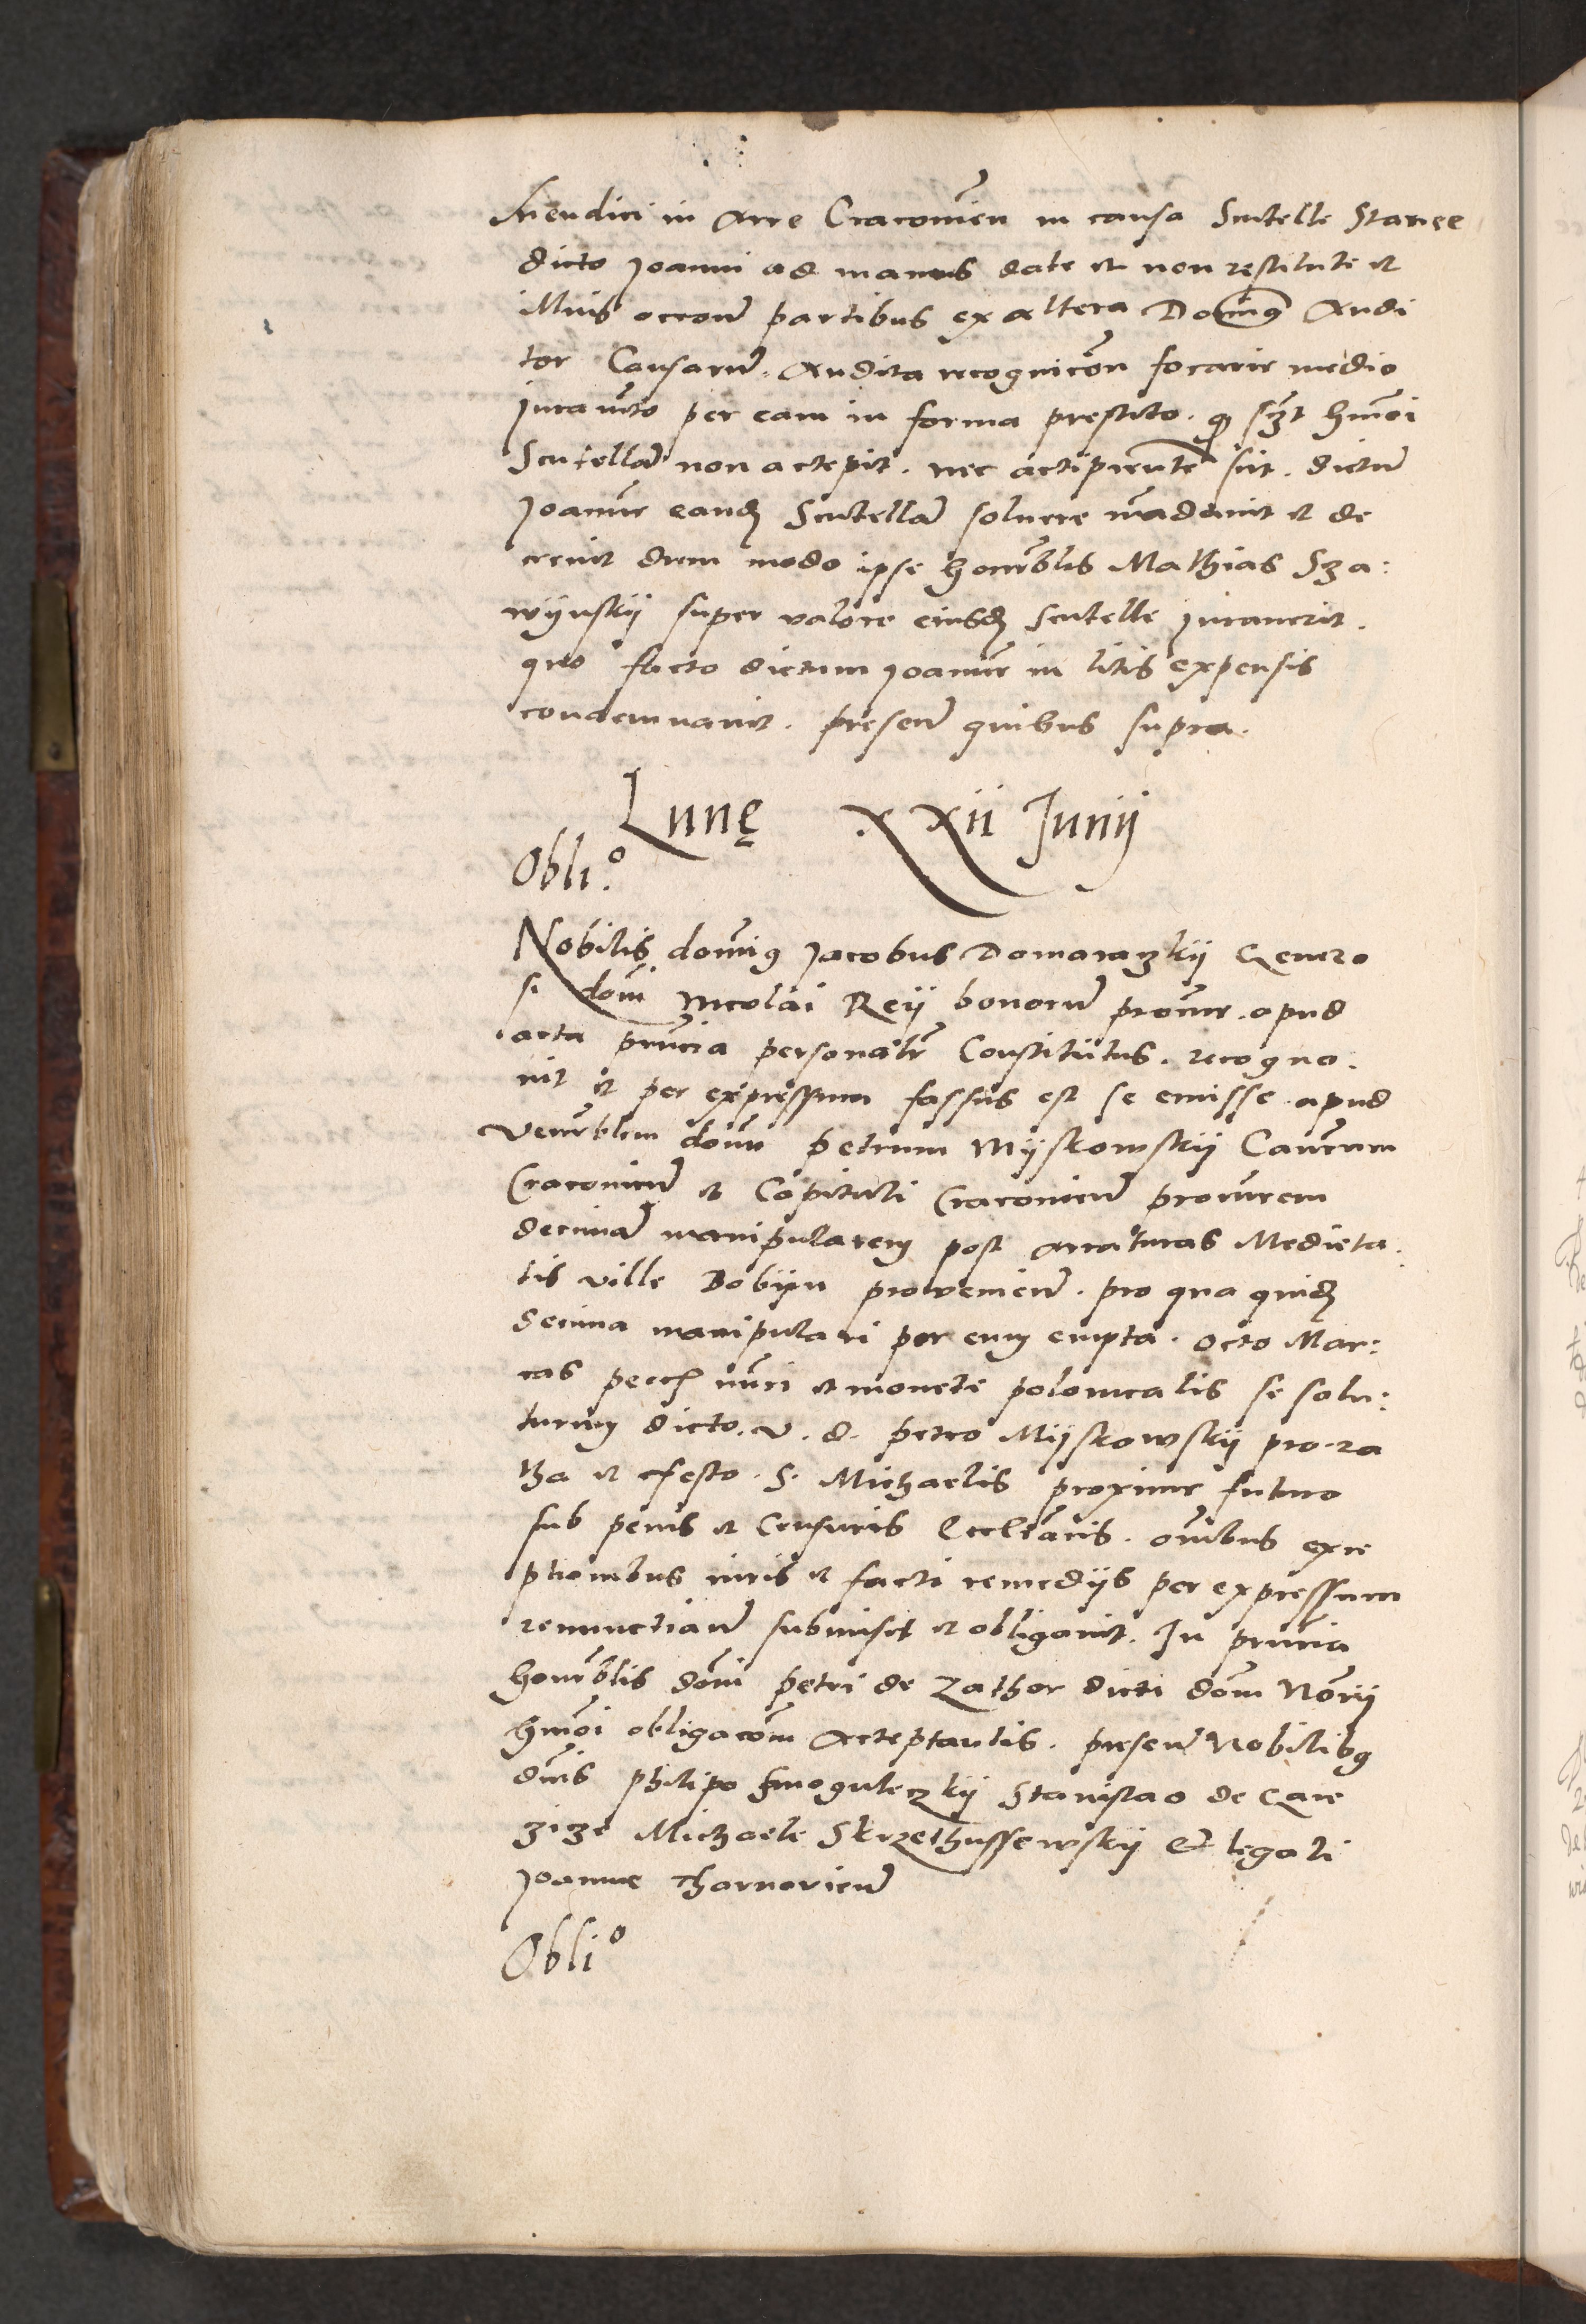 Smendici in Arce Cracovien in causa Scutelle Stanee
dicto Joanni ad manus date et non restitute et
illius occon partibus ex altera Doming Audi
tor Causarum. Audita recognicon focarie medio
Juramto per eam in forma prestito. hmoi
Scutella non accepit. nec accipiente sit. dictu
Joanne eand Scutella solvere madavit et de
crevit dum modo ipse honrblis Mathias Sza:
wijnskij super valore eiusd Scutelle Juraverit.
quo facto dictum Joanne in litis expensis
condemnavit. presen quibus supra.
Lunę xxii Junij
Obli.o
Nobilis domig Jacobus Domaraczkij Genero
si dom Nicolai Reij bonoru procur. apud
acta pncia personalr Constitutus. recogno.
vit et per expressum fassus est se emisse apud
Venrblem domn petrum Mijskowskij Canucum
Cracovien et Capituli Cracovien procurem
decima manipularem post Araturas Medieta.
tis ville Bobijn provenien. pro qua quid
decima manipulari per eum empta. octo Mar:
cas pecc nuri et monete polonicalis se solu:
turum dicto. v. d. petro Mijskowskij pro ra
tha et festo. S. Michaelis proxime futuro
sub penis et Censuris Eccliaris. omibus exce
ptionibus iuris et facti remedijs per expressum
renunctian submisit et obligavit. In pncia
honrblis domi petri de Zathor dicti dom Norij
hmoi obligacom Acceptantis. presen Nobilibg
dnis philipo Smoguleczkij Stanislao de Gare
zize Michaele Skrzethussewskij et legali
Joanne Tharnovien
Obli.o